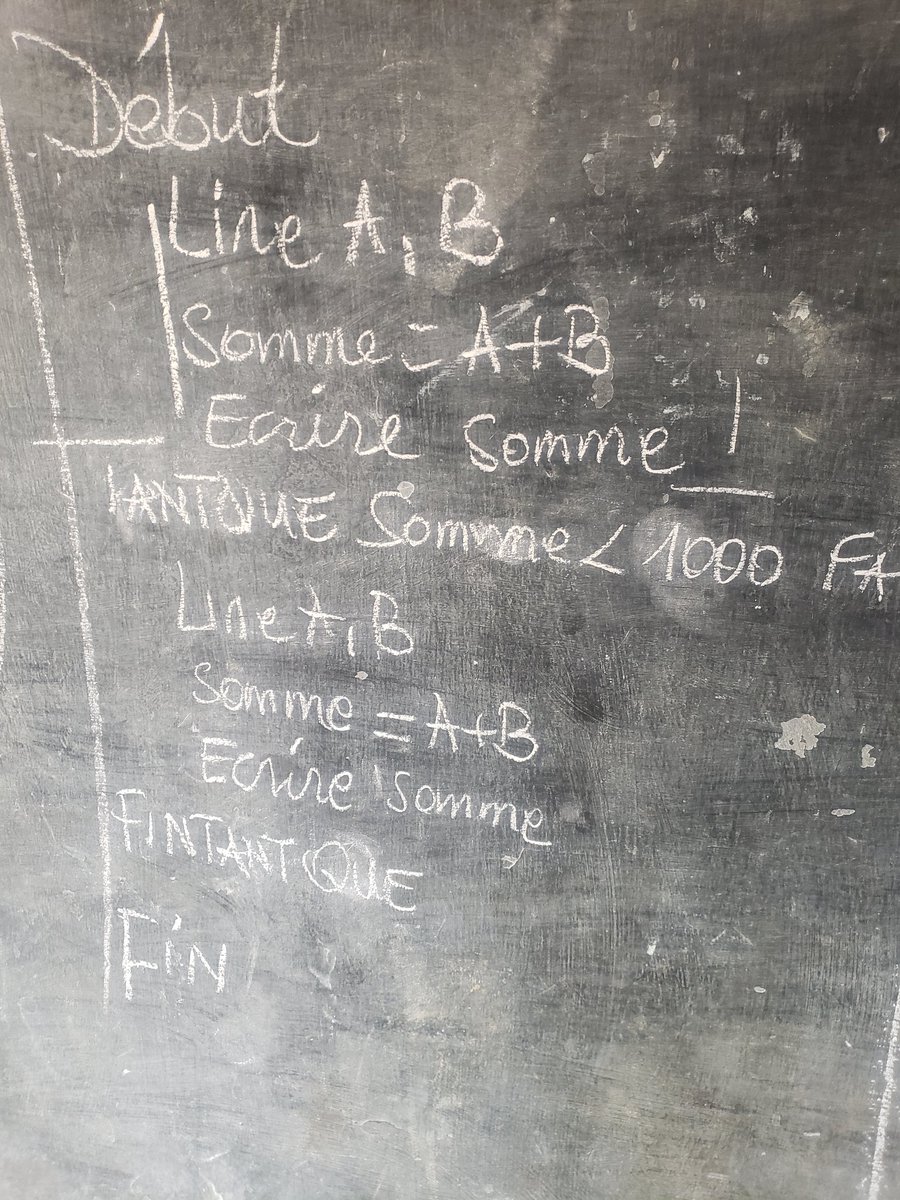 Début
Lire A, B
Somme = A+B
Ecrire Somme
TANTQUE Somme < 1000 FA
Lire A, B
Somme = A+B
Ecrire Somme
FINTANTQUE
FiN